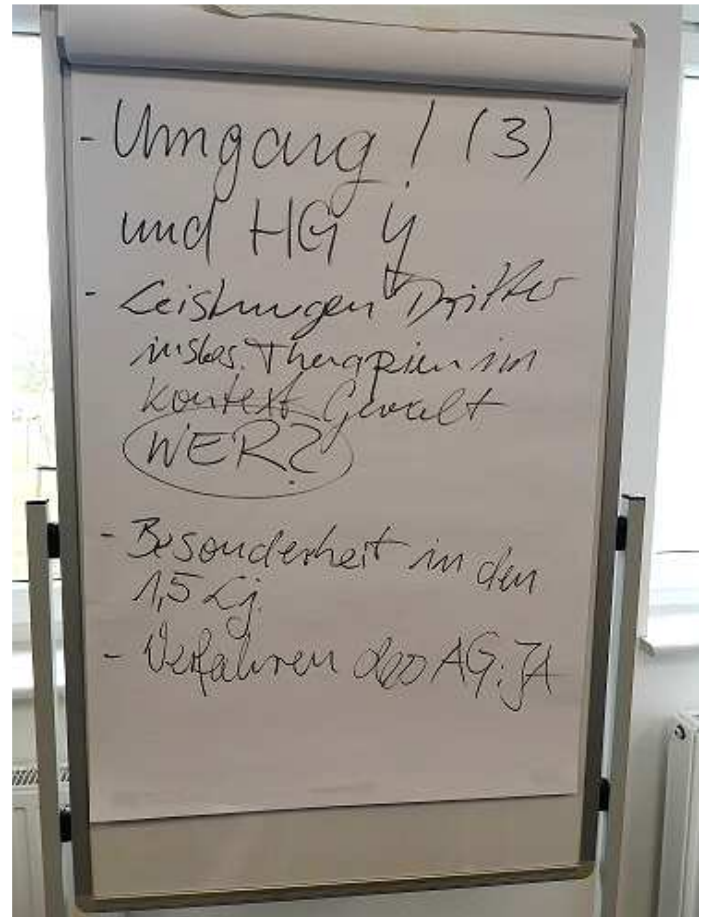 - Umgang! (3)
und HG
- Leistungen Dritter
insbes. Therapien im
Kontext Gewalt
WER?
- Besonderheit in den
1,5 Lj.
- Verfahren des AG: JA